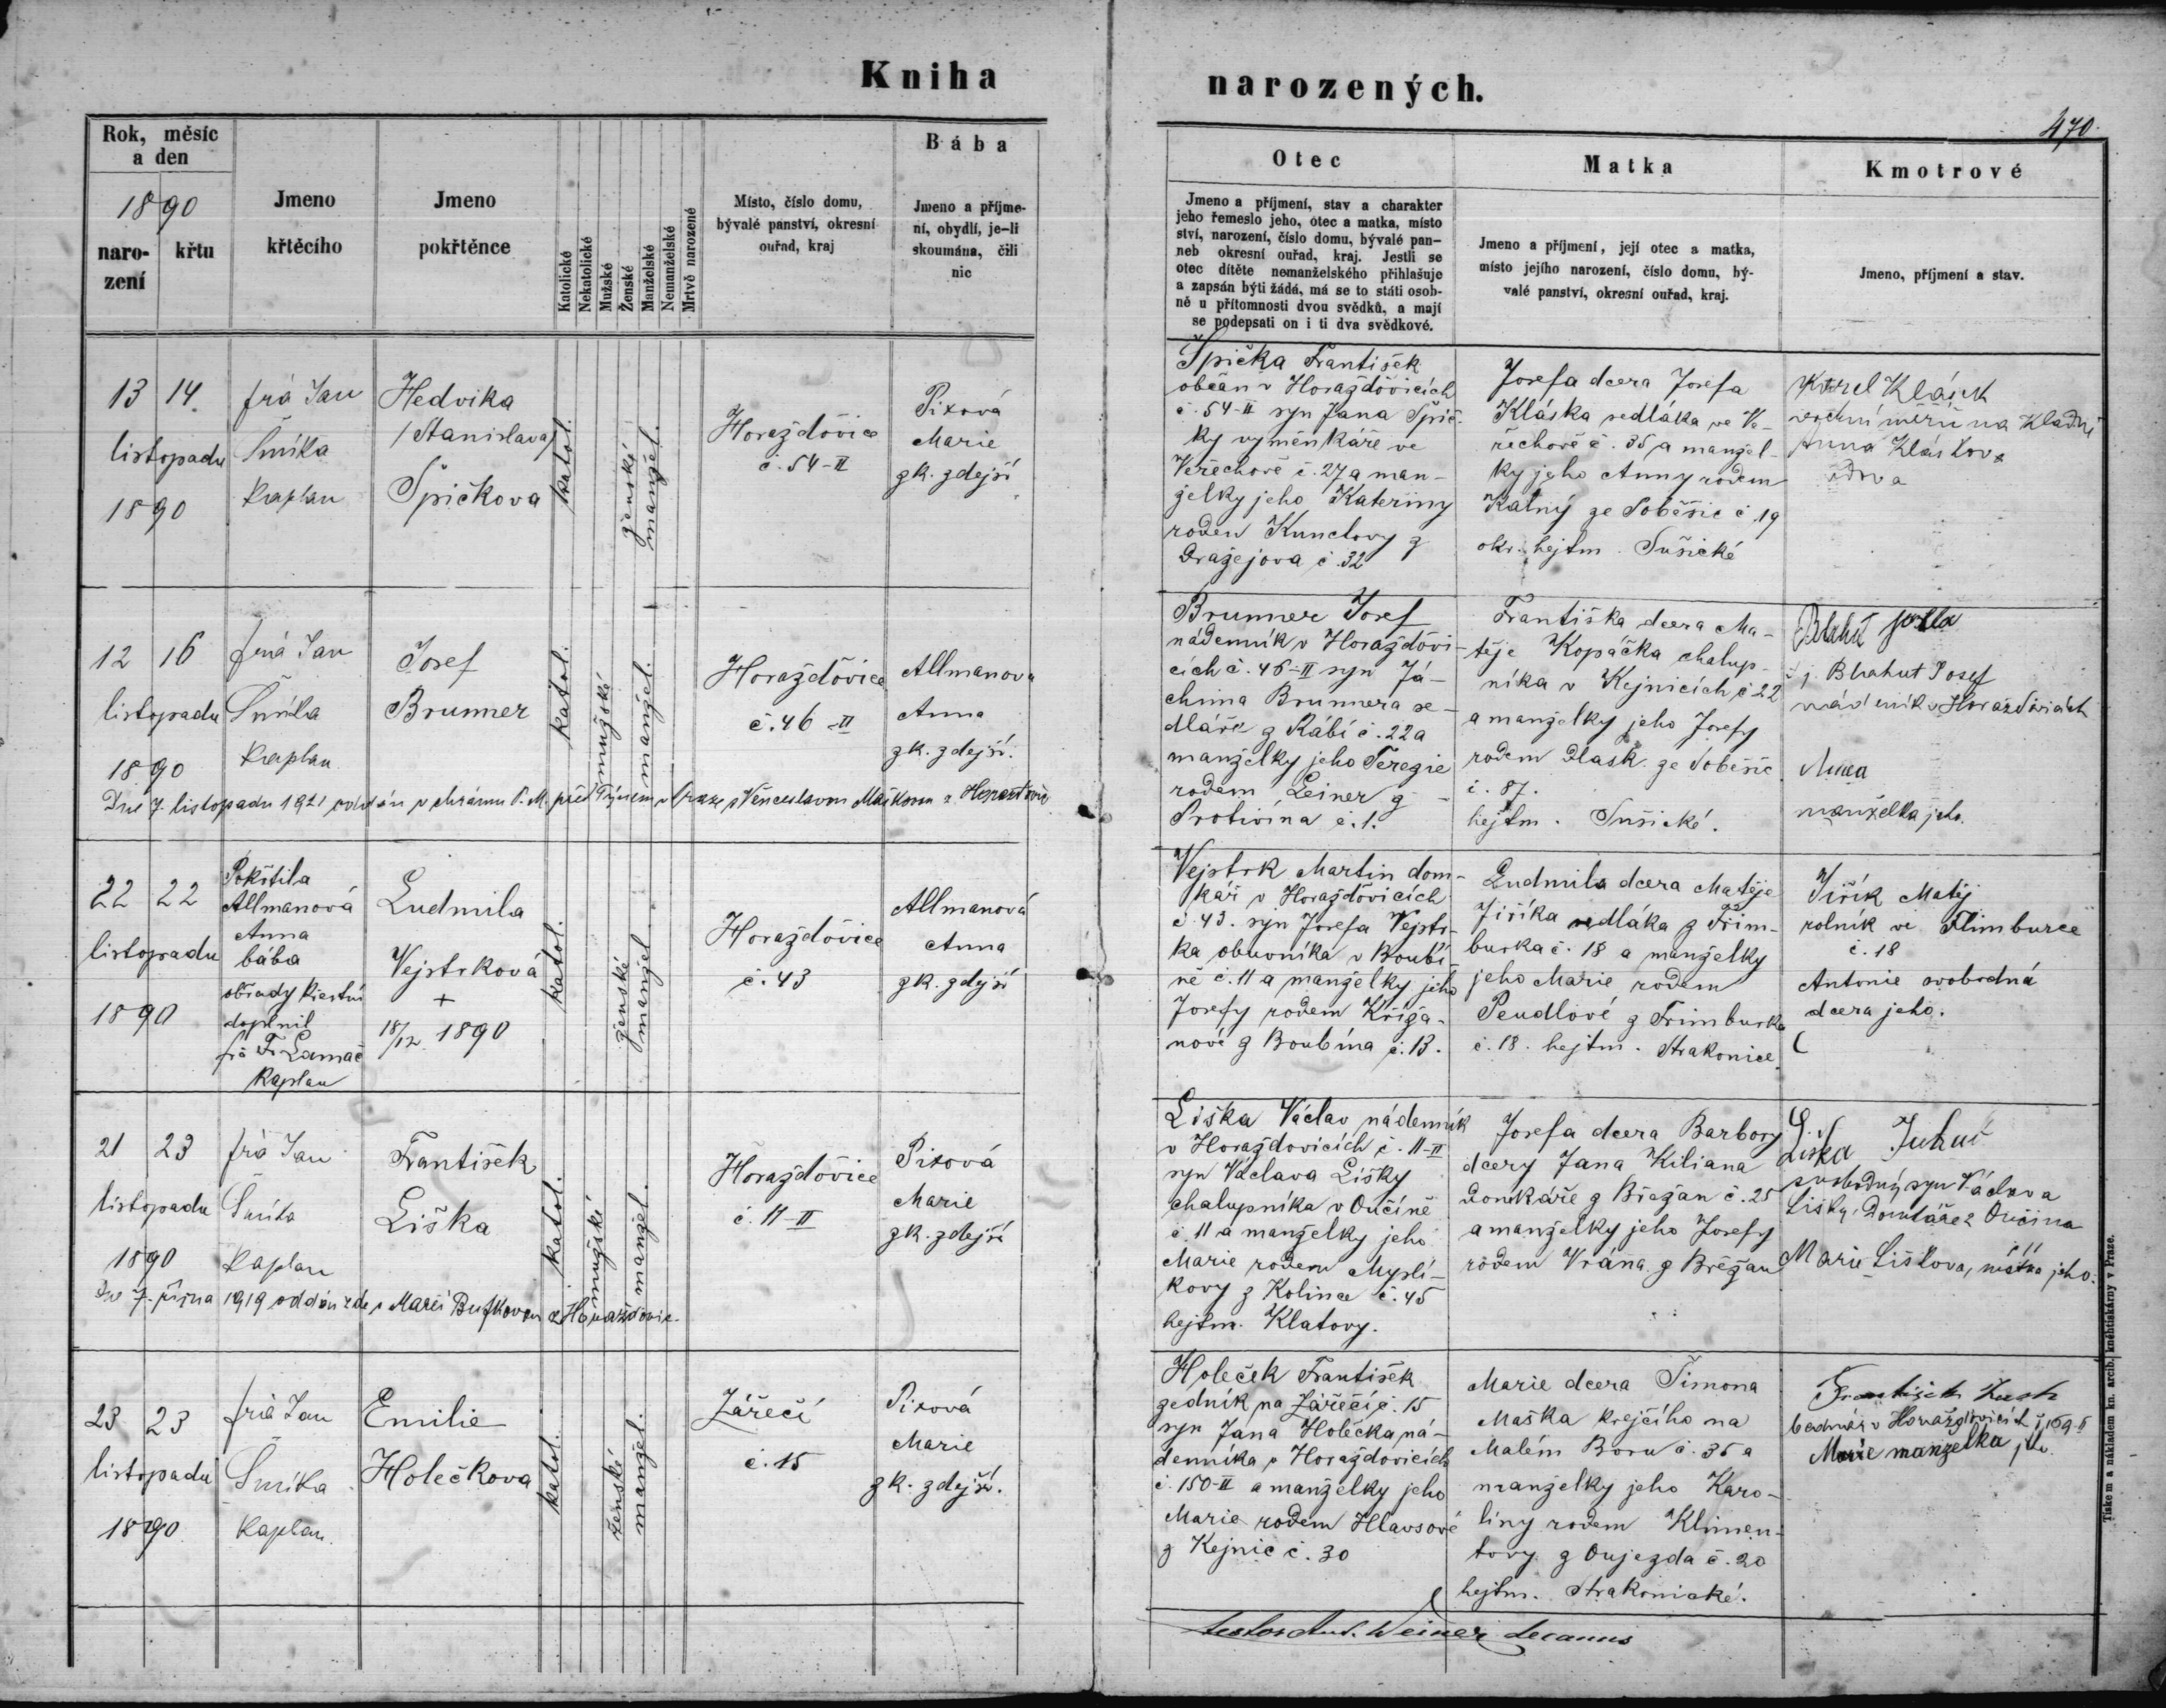 Kniha narozených.
470.
Rok, měsíc
a den
1890
naro-
zení
křtu
Jmeno
křtěcího
Jmeno
pokřtěnce
Katolické
Nekatolické
Mužské
Ženské
Manželské
Nemanželské
Mrtvě narozené
Místo, číslo domu,
bývalé panství, okresní
ouřad, kraj
Bába
Jmeno a příjme-
ní, obydlí, je-li
skoumána, čili
nic
Otec
Jmeno a příjmení, stav a charakter
jeho řemeslo jeho, otec a matka, místo
ství, narození, číslo domu, bývalé pan-
neb okresní ouřad, kraj. Jestli se
otec dítěte nemanželského přihlašuje
a zapsán býti žádá, má se to státi osob-
ně u přítomnosti dvou svědků, a mají
se podepsati on i ti dva svědkové.
Matka
Jmeno a příjmení, její otec a matka,
místo jejího narození, číslo domu, bý-
valé panství, okresní ouřad, kraj.
Kmotrové
Jmeno, příjmení a stav.
13 14.
listopadu
1890
frá Jan
Šmíka
kaplan
Hedvika
/Stanislava/
Špičkova
katol.
ženské
manžel.
Horažďovice
č. 54-II
Pixová
Marie
zk. zdejší
Špička František
občan v Horažďovicích
č. 54-II syn Jana Špič-
ky výměnkáře ve
Veřechově č. 27 a man-
želky jeho Kateřiny
rodem Kunclovy z
Dražejova č. 32
Josefa dcera Josefa
Kláska sedláka ve Ve-
řechově č. 35 a manžel-
ky jeho Anny rodem
Kalný ze Soběšic č. 19
okr. hejtm. Sušické
Karel Klásek
na Kladně
Anna Kláskova
vdova
12 16
listopadu
1890
frá Jan
Šmíka
kaplan
Josef
Brunner
katol.
mužské
manžel.
Horažďovice
č. 46-II
Allmanova
Anna
zk. zdejší.
Dne 7. listopadu 1921 oddán v chrámu P. M. před Týnem v Praze s Věnceslavou Maškovou z
Brunner Josef
nádenník v Horažďovi-
cích č. 46-II syn Já-
chima Brunnera se-
dláře z Rábí č. 22 a
manželky jeho Terezie
rodem Leiner z
Protivína č. 1.
Františka dcera Ma-
těje Kopáčka chalup-
níka v Kejnicích č 22
a manželky jeho Josefy
rodem Dlask ze Soběšic
č. 87.
hejtm. Sušické.
Blahut
tj. Blahut Josef
nádeník v Horažďovicích
Anna
manželka jeho.
22 22
listopadu
1890
Pokřtila
Allmanová
Anna
bába
obřady křestní
doplnil
frá Fr. Lamač
kaplan
Ludmila
Vejstrková
+
18/12 1890
katol.
ženské
manžel.
Horažďovice
č. 43
Allmanová
Anna
zk. zdejší
Vejstrk Martin dom-
kář v Horažďovicích
č 43. syn Josefa Vejstr-
ka obuvníka v Boubí-
ně č. 11 a manželky jeho
Josefy rodem Křiža-
nové z Boubína č. 13.
Ludmila dcera Matěje
Jiříka sedláka z Frim-
burka č. 18 a manželky
jeho Marie rodem
Pendlové z Frimburka
č. 18. hejtm. Strakonice.
Jiřík Matěj
rolník ve Flimburce
č. 18
Antonie svobodná
dcera jeho.
21 23
listopadu
1890
frá Jan
Šmíka
kaplan
František
Liška
katol.
mužské
manžel.
Horažďovice
č. 11-II
Pixová
Marie
zk. zdejší
Dne 7. října 1919 oddán zde s Marií z Horažďovic.
Liška Václav nádenník
v Horažďovicích č. 11-II
syn Václava Lišky
chalupníka v Oučíně
č. 11 a manželky jeho
Marie rodem Myslí-
kovy z Kolince č. 45
hejtm. Klatovy.
Josefa dcera Barbory
dcery Jana Kiliana
domkáře z Břežan č. 25
a manželky jeho Josefy
rodem Vrána z Břežan
Liška
svobodný syn Václava
Lišky, domkáře z Oučína
Marie Liškova, jeho.
23 23
listopadu
1890
frá Jan
Šmíka
kaplan.
Emilie
Holečkova
katol.
ženské
manžel.
Zářečí
č. 15
Pixová
Marie
zk. zdejší.
Holeček František
zedník na Zářečí č. 15
syn Jana Holečka ná-
denníka v Horažďovicích
č. 150-II a manželky jeho
Marie rodem Hlavsové
z Kejnic č. 30
Marie dcera Šimona
Maška krejčího na
Malém Boru č. 35 a
manželky jeho Karo-
líny rodem Klimen-
tovy z Oujezda č. 20
hejtm. Strakonické.
František
bednář v Horažďovicích č. 169-II
Marie manželka jeho.
testor Ant. Weiner decanus
Tiskem a nákladem kn. arcib. knihtiskárny v Praze.